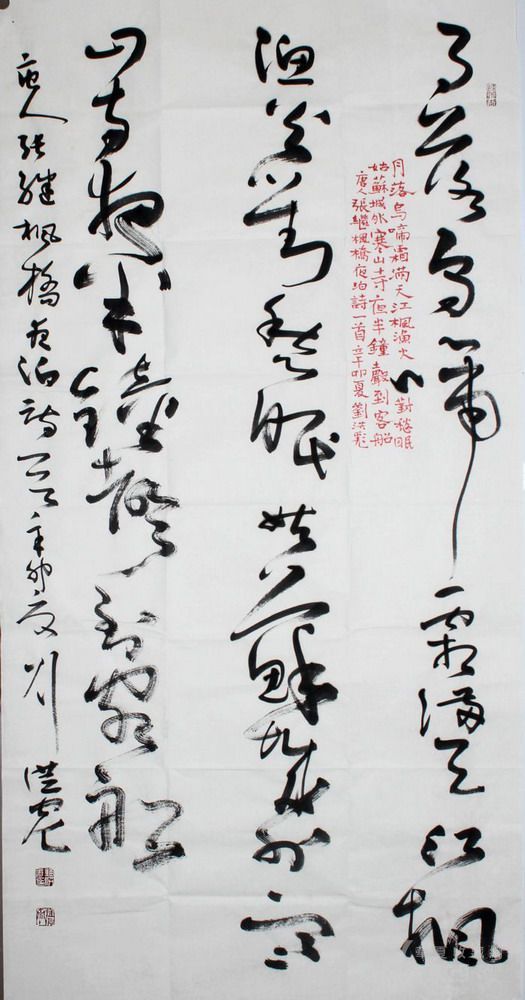 月落烏啼霜滿天江楓
漁火對愁眠姑蘇城外寒
山寺夜半鐘聲到客船
唐人張繼楓橋夜泊詩一首辛卯夏劉洪彪
月落烏啼霜滿天江楓漁火對愁眠
姑蘇城外寒山寺夜半鐘聲到客船
唐人張繼楓橋夜泊詩一首辛卯夏劉洪彪